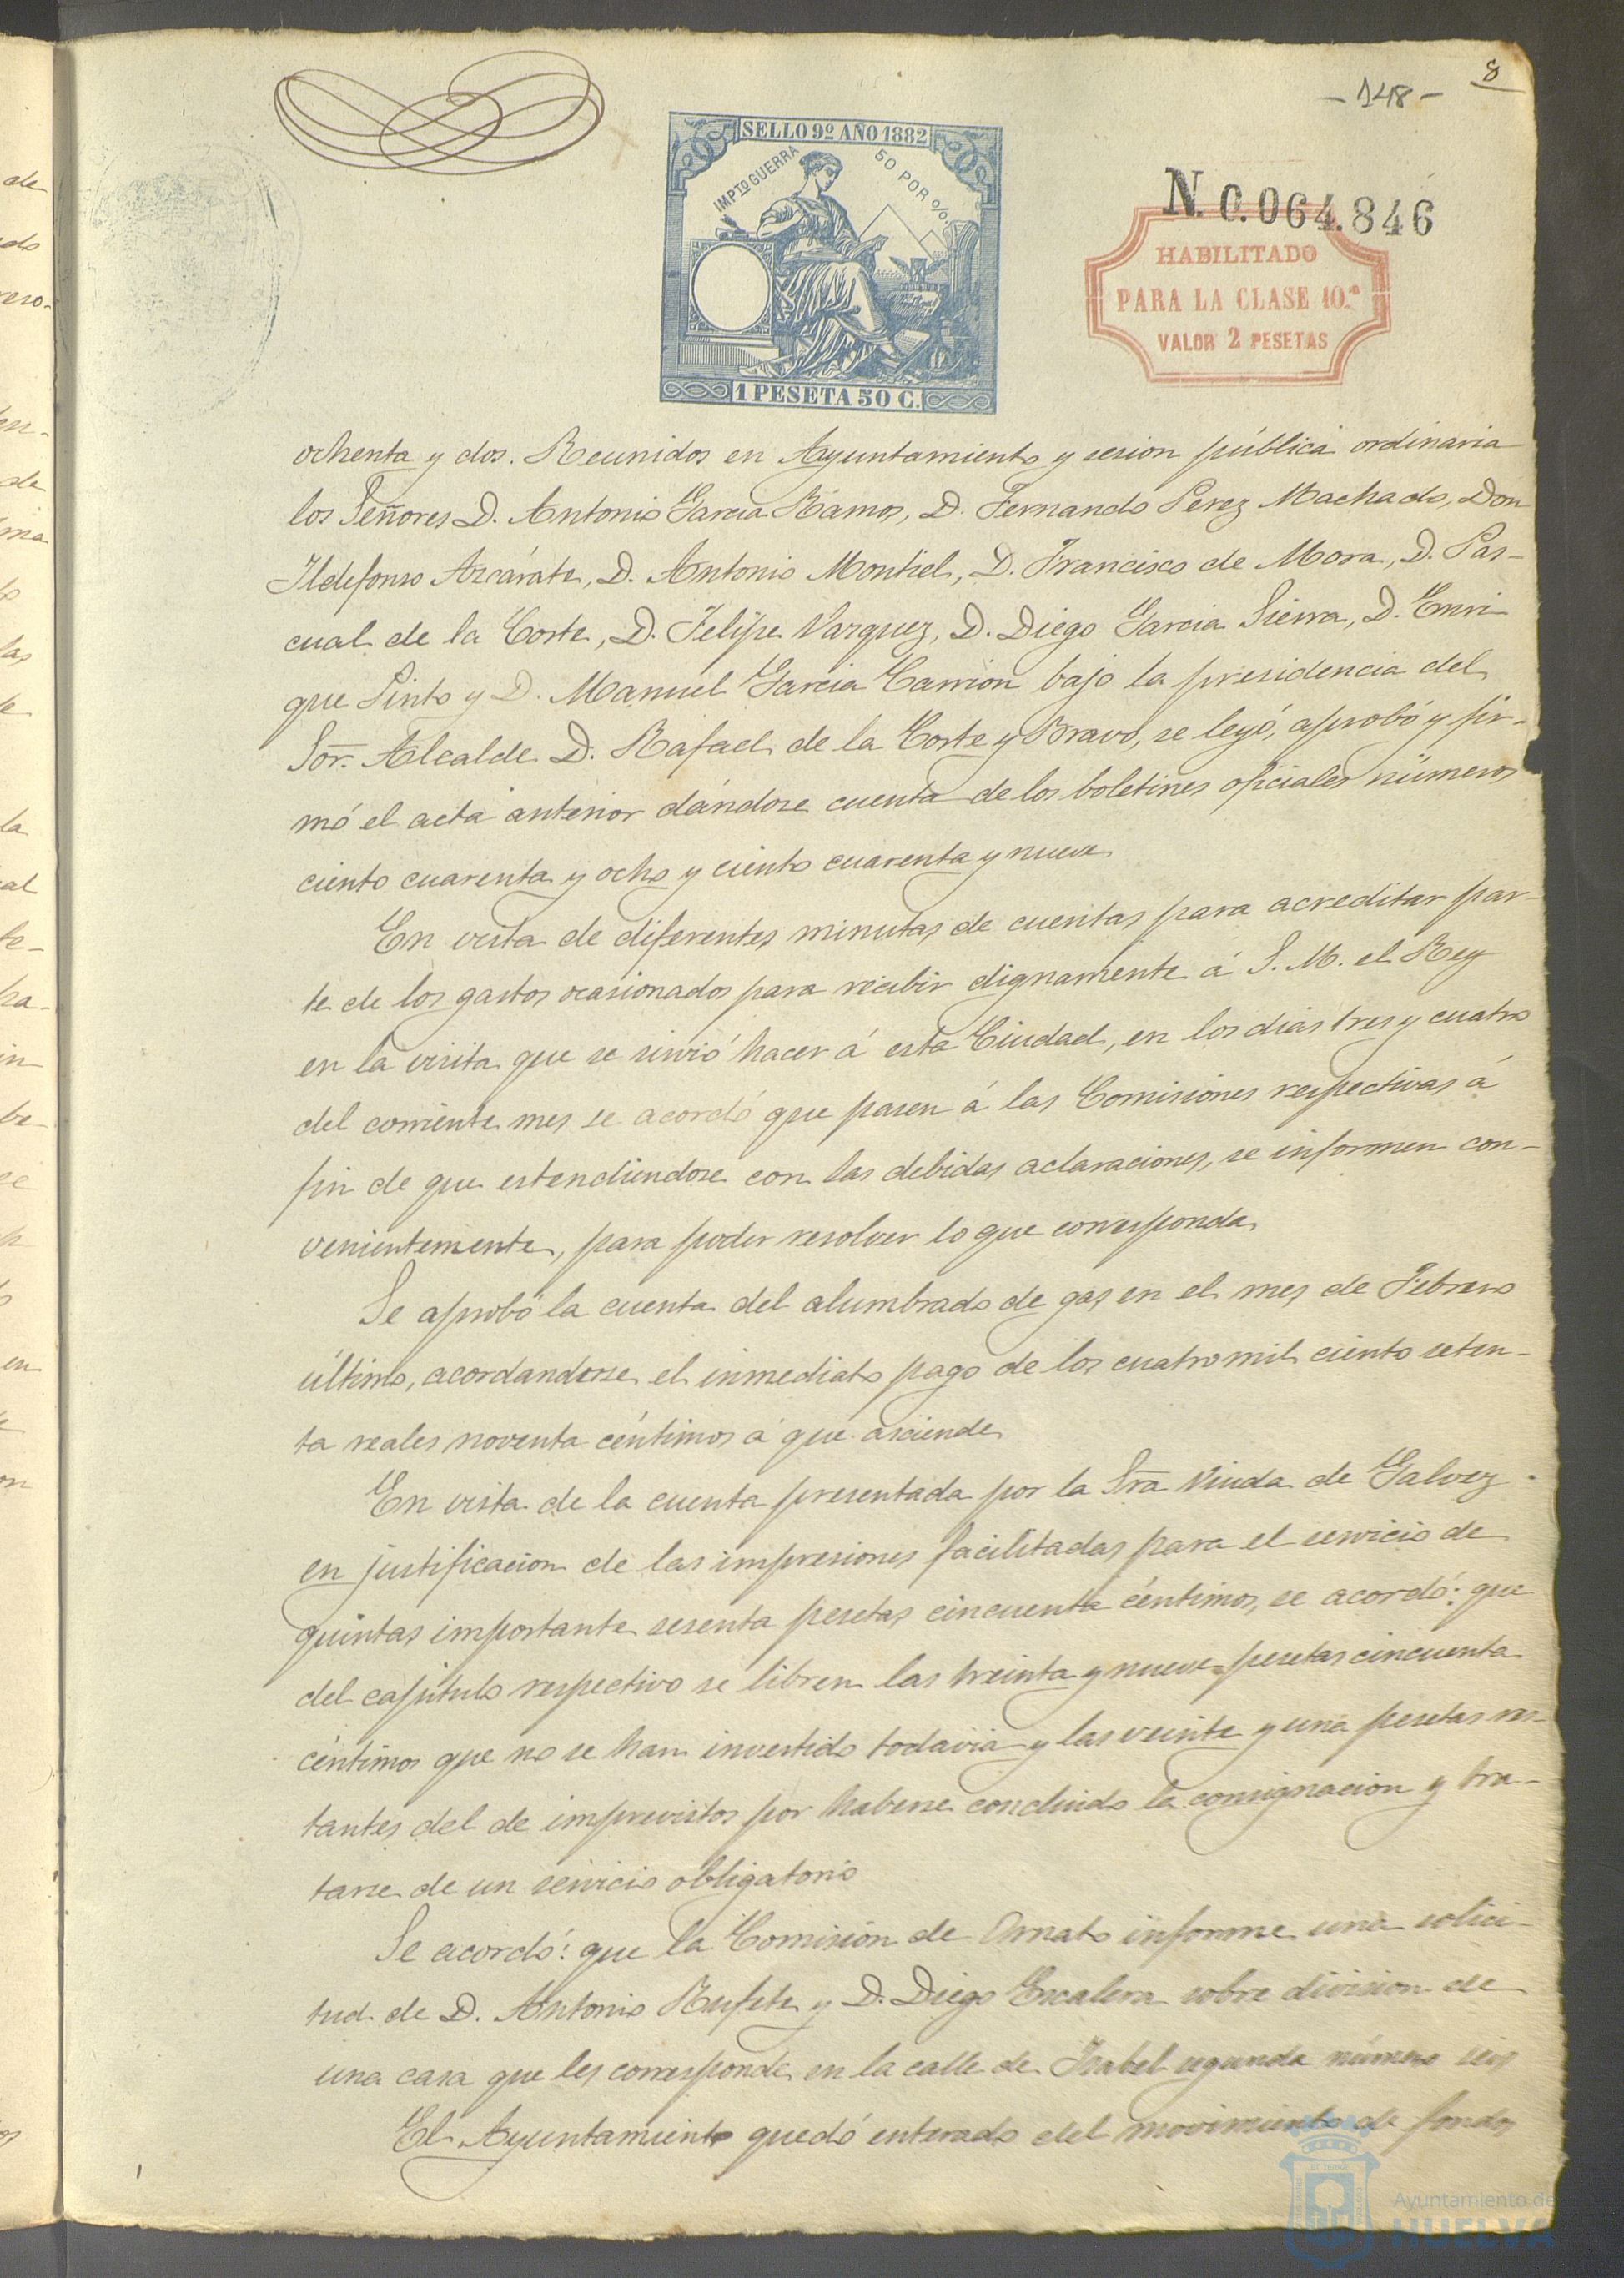 8
- 148 -
SELLO 9º AÑO 1882
IMPTO GUERRA 50 POR %.
1 PESETA 50 C.
N. 0.064.846
HABILITADO
PARA LA CLASE 10.ª
VALOR 2 PESETAS
ochenta y dos. Reunidos en Ayuntamiento y sesion pública ordinaria
los Señores D. Antonio Garcia Ramos, D. Fernando Perez Machado, Don
Ildefonso Azcárate, D. Antonio Montiel, D. Francisco de Mora, D. Pas-
cual de la Corte, D. Felipe Vazquez, D. Diego Garcia Sierra, D. Enri
que Pinto y D. Manuel Garcia Carrion bajo la presidencia del
Sor. Alcalde D. Rafael de la Corte y Bravo, se leyó, aprobó y fir-
mó el acta anterior dándose cuenta de los boletines oficiales números
ciento cuarenta y ocho y ciento cuarenta y nueve
En vista de diferentes minutas de cuentas para acreditar par-
te de los gastos ocasionados para recibir dignamente á S. M. el Rey
en la visita que se sirvió hacer á esta Ciudad, en los dias tres y cuatro
del corriente mes se acordó que pasen á las Comisiones respectivas á
fin de que estendiendose con las debidas aclaraciones, se informen con-
venientemente, para poder resolver lo que corresponda
Se aprobó la cuenta del alumbrado de gas en el mes de Febrero
último, acordandose el inmediato pago de los cuatro mil ciento seten-
ta reales noventa céntimos á que asciende
En vista de la cuenta presentada por la Sra Viuda de Galvez
en justificacion de las impresiones facilitadas para el servicio de
quintas importante sesenta pesetas cincuenta céntimos, se acordó: que
del capitulo respectivo se libren las treinta y nueve pesetas cincuenta
céntimos que no se han invertido todavia y las veinte y una pesetas res-
tantes del de imprevistos por haberse concluido la consignacion y tra-
tarse de un servicio obligatorio
Se acordó: que la Comision de Ornato informe una solici-
tud de D. Antonio Rufete y D. Diego Escalera sobre division de
una casa que les corresponde en la calle de Isabel segunda número seis
El Ayuntamiento quedó enterado del movimiento de fondos
Ayuntamiento de
HUELVA